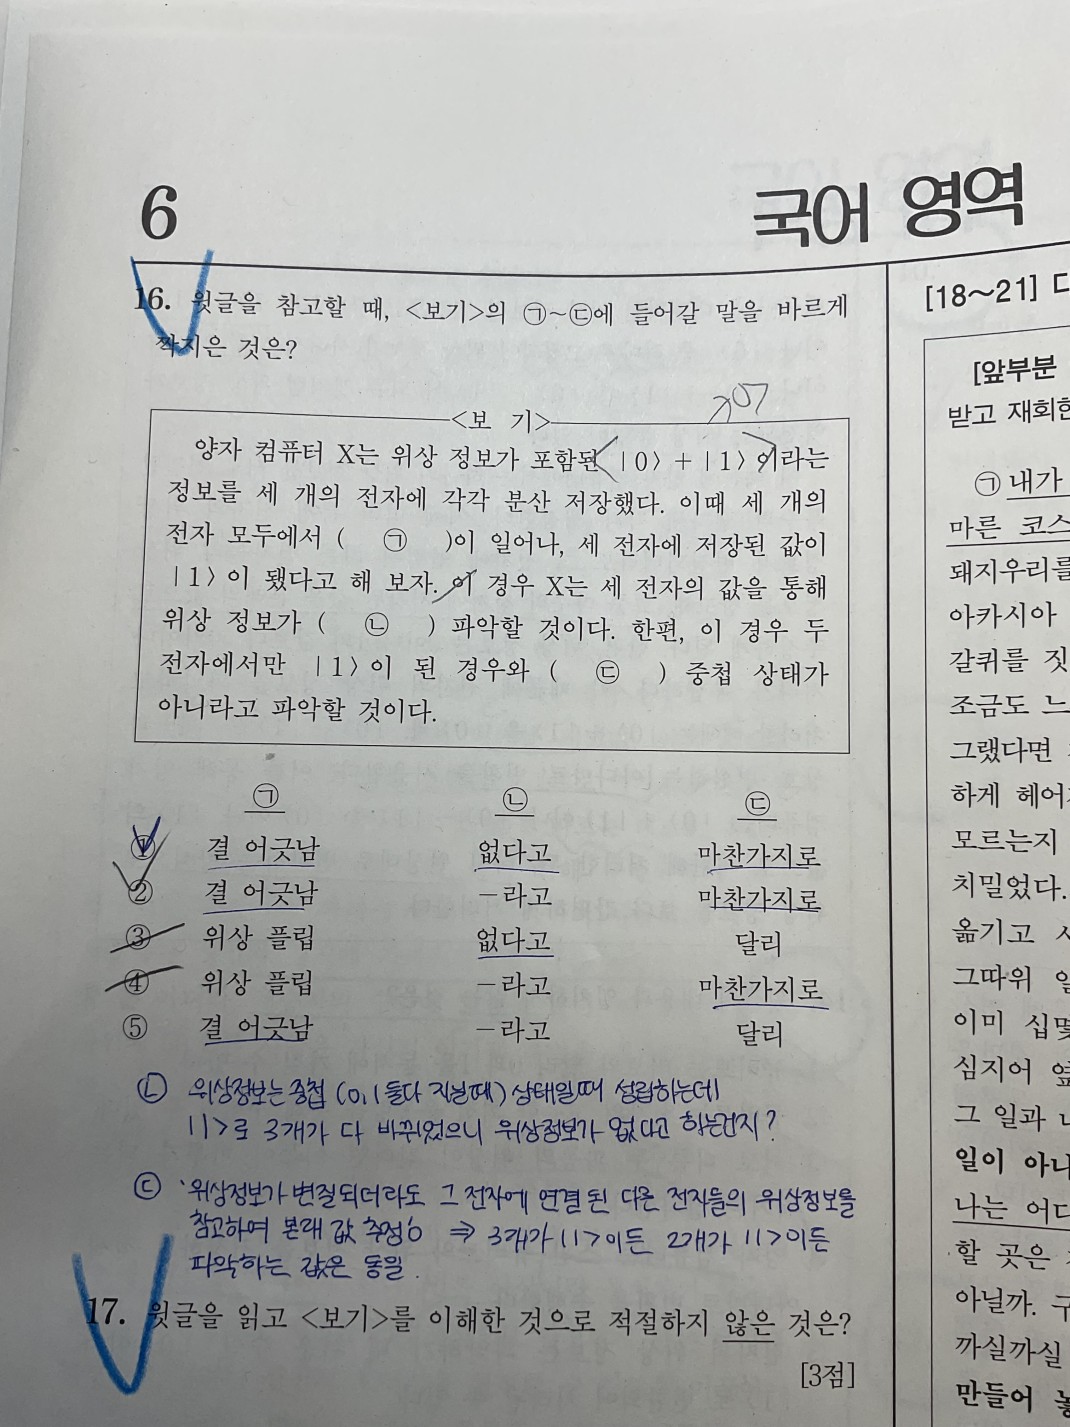 6
국어 영역
16. 윗글을 참고할 때, <보기>의 ㉠~㉢에 들어갈 말을 바르게
짝지은 것은?
<보 기>
양자 컴퓨터 X는 위상 정보가 포함된 |0> + |1>이라는
정보를 세 개의 전자에 각각 분산 저장했다. 이때 세 개의
전자 모두에서 ( ㉠ )이 일어나, 세 전자에 저장된 값이
|1>이 됐다고 해 보자. 이 경우 X는 세 전자의 값을 통해
위상 정보가 ( ㉡ ) 파악할 것이다. 한편, 이 경우 두
전자에서만 |1>이 된 경우와 ( ㉢ ) 중첩 상태가
아니라고 파악할 것이다.
㉠ ㉡ ㉢
① 결 어긋남 없다고 마찬가지로
② 결 어긋남 -라고 마찬가지로
③ 위상 플립 없다고 달리
④ 위상 플립 -라고 마찬가지로
⑤ 결 어긋남 -라고 달리
㉡ 위상정보는 중첩 (0,1 둘다 지닐때) 상태일때 성립하는데
|1>로 3개가 다 바뀌었으니 위상정보가 없다고 하는건지?
㉢ 위상정보가 변질되더라도 그 전자에 연결된 다른 전자들의 위상정보를
참고하여 본래 값 추정 ⇒ 3개가 |1>이든 2개가 |1>이든
파악하는 값은 동일.
17. 윗글을 읽고 <보기>를 이해한 것으로 적절하지 않은 것은?
[3점]
[18~21] 다
[앞부분
받고 재회한
㉠ 내가
마른 코스
돼지우리를
아카시아
갈퀴를 짓
조금도 느
그랬다면
하게 헤어
모르는지
치밀었다.
옮기고
그따위
이미 십몇
심지어
그 일과
일이 아니
나는 어디
할 곳은
아닐까.
까실까실
만들어 놓